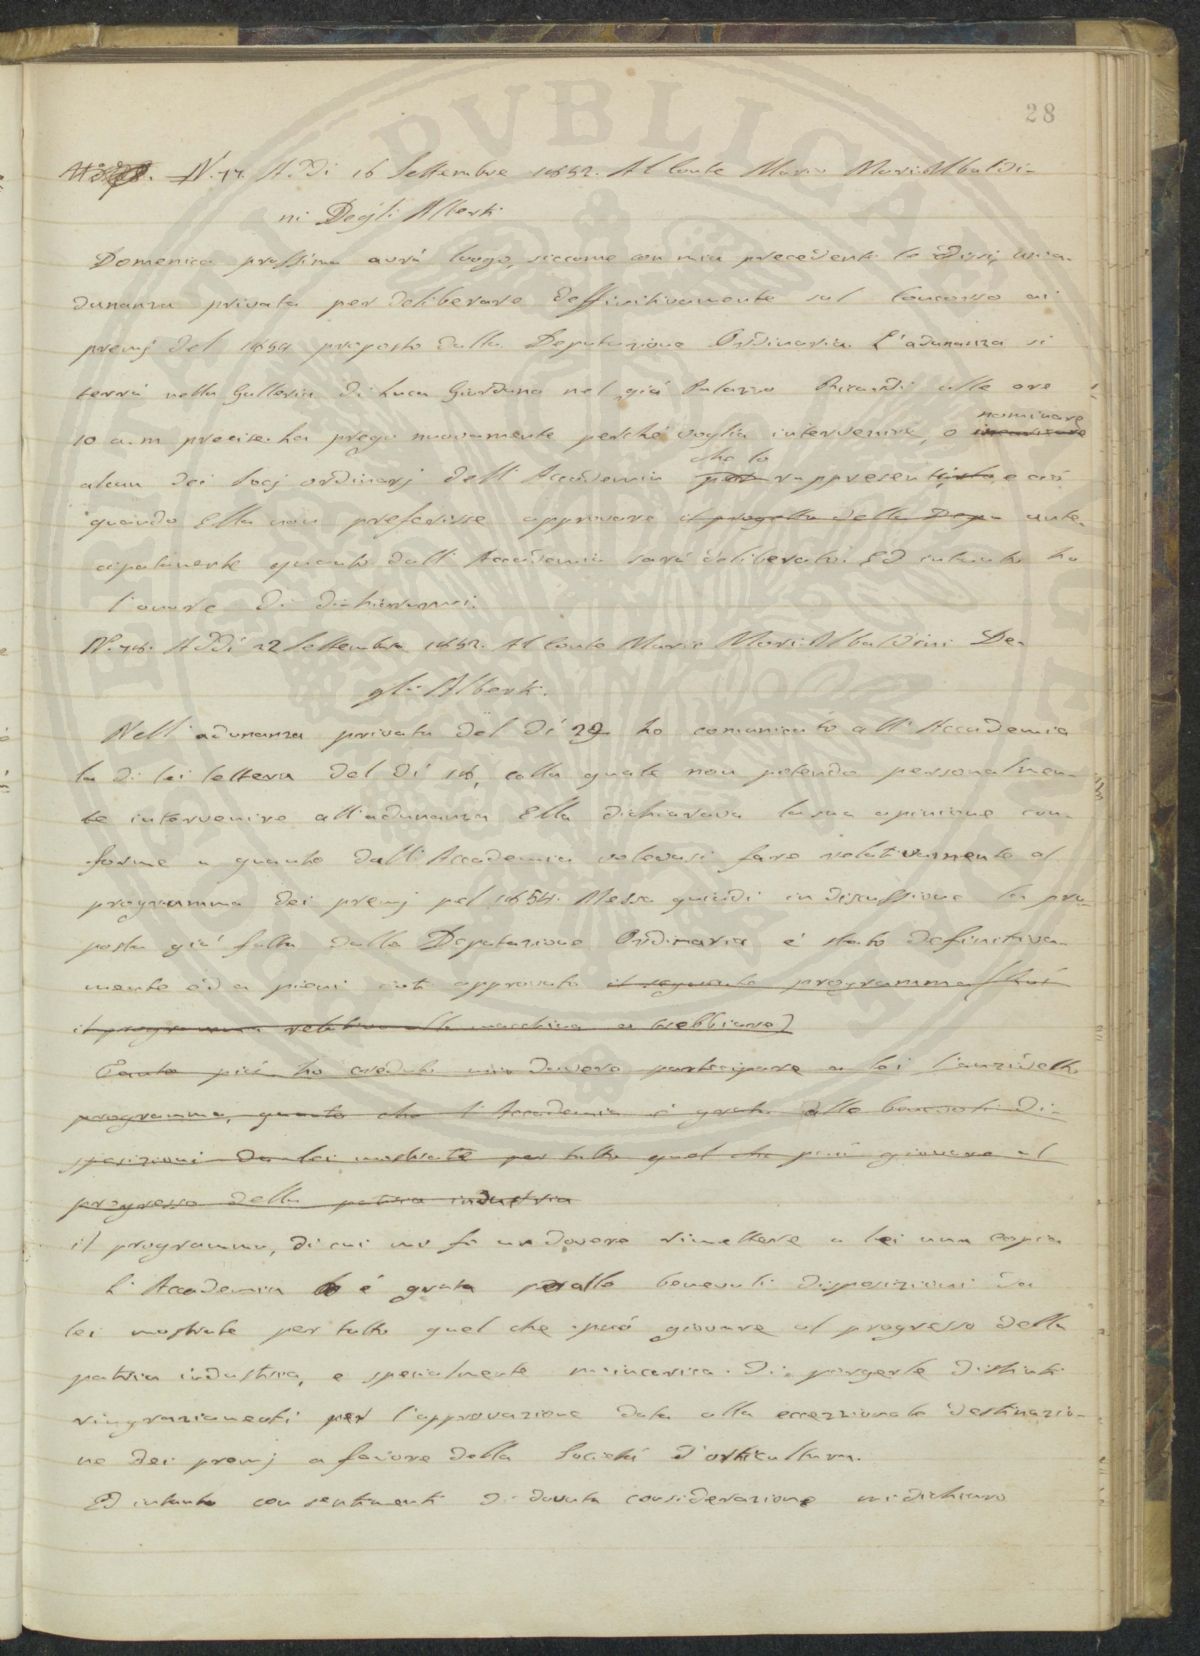 28
N. 77. Addi 16 Settembre 1852. Al Conte Mario Mori Ubaldi-
ni Degli Alberti
Domenica prossima avrà luogo, siccome con mia precedente le dissi, un'a-
dunanza privata per deliberare deffinitivamente sul Concorso ai
premj del 1854 proposto dalla Deputazione Ordinaria. L'adunanza si
terrà nella Galleria di Luca Giordano nel già Palazzo Riccardi alle ore
nominare
10 a.m. precise. La prego nuovamente perchè voglia intervenire, o incaricare
che lo
alcun dei Socj ordinarj dell'Accademia per rappresentarlo, e ciò
quando Ella non preferisse approvare il progetto della Dep. ante-
cipatamente quanto dall'Accademia sarà deliberato. Ed intanto ho
l'onore di dichiararmi.
N. 78. Addì 22 Settembre 1852. Al Conte Mario Mori Ubaldini De-
gli Alberti.
Nell'adunanza privata del dì 29 ho comunicato all'Accademia
la di lei lettera del dì 18, colla quale non potendo personalmen-
te intervenire all'adunanza Ella dichiarava la sua opinione con-
forme a quanto dall'Accademia volevasi fare relativamente al
programma dei premj pel 1854. Messa quindi in discussione la pro-
posta già fatta dalla Deputazione Ordinaria è stato definitiva-
mente ed a pieni voti approvato il seguente programma
il programma relativo alle macchina a trebbiare)
Tanto più ho creduto mio dovere partecipare a lei l'anzidetto
programma, quanto che l'Accademia è grata alle benevoli di-
sposizioni da lei mostrate per tutto quel che può giovare al
progresso della patria industria
il programma, di cui mi fo un dovere rimettere a lei una copia
L'Accademia è grata per alle benevoli disposizioni da
lei mostrate per tutto quel che può giovare al progresso della
patria industria, e specialmente m'incarica di porgerle distinti
ringraziamenti per l'approvazione data alla eccezzionale destinazio-
ne dei premj a favore della Società d'orticultura.
Ed intanto con sentimenti di dovuta considerazione mi dichiaro